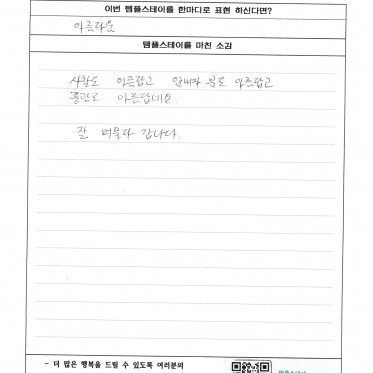 이번 템플스테이를 한마디로 표현 하신다면?
아름다움
템플스테이를 마친 소감
사찰도 아름답고 안내자 분도 아름답고
풍경도 아름답네요.
잘 머물다 갑니다.
- 더 많은 행복을 드릴 수 있도록 여러분의
템플스테이